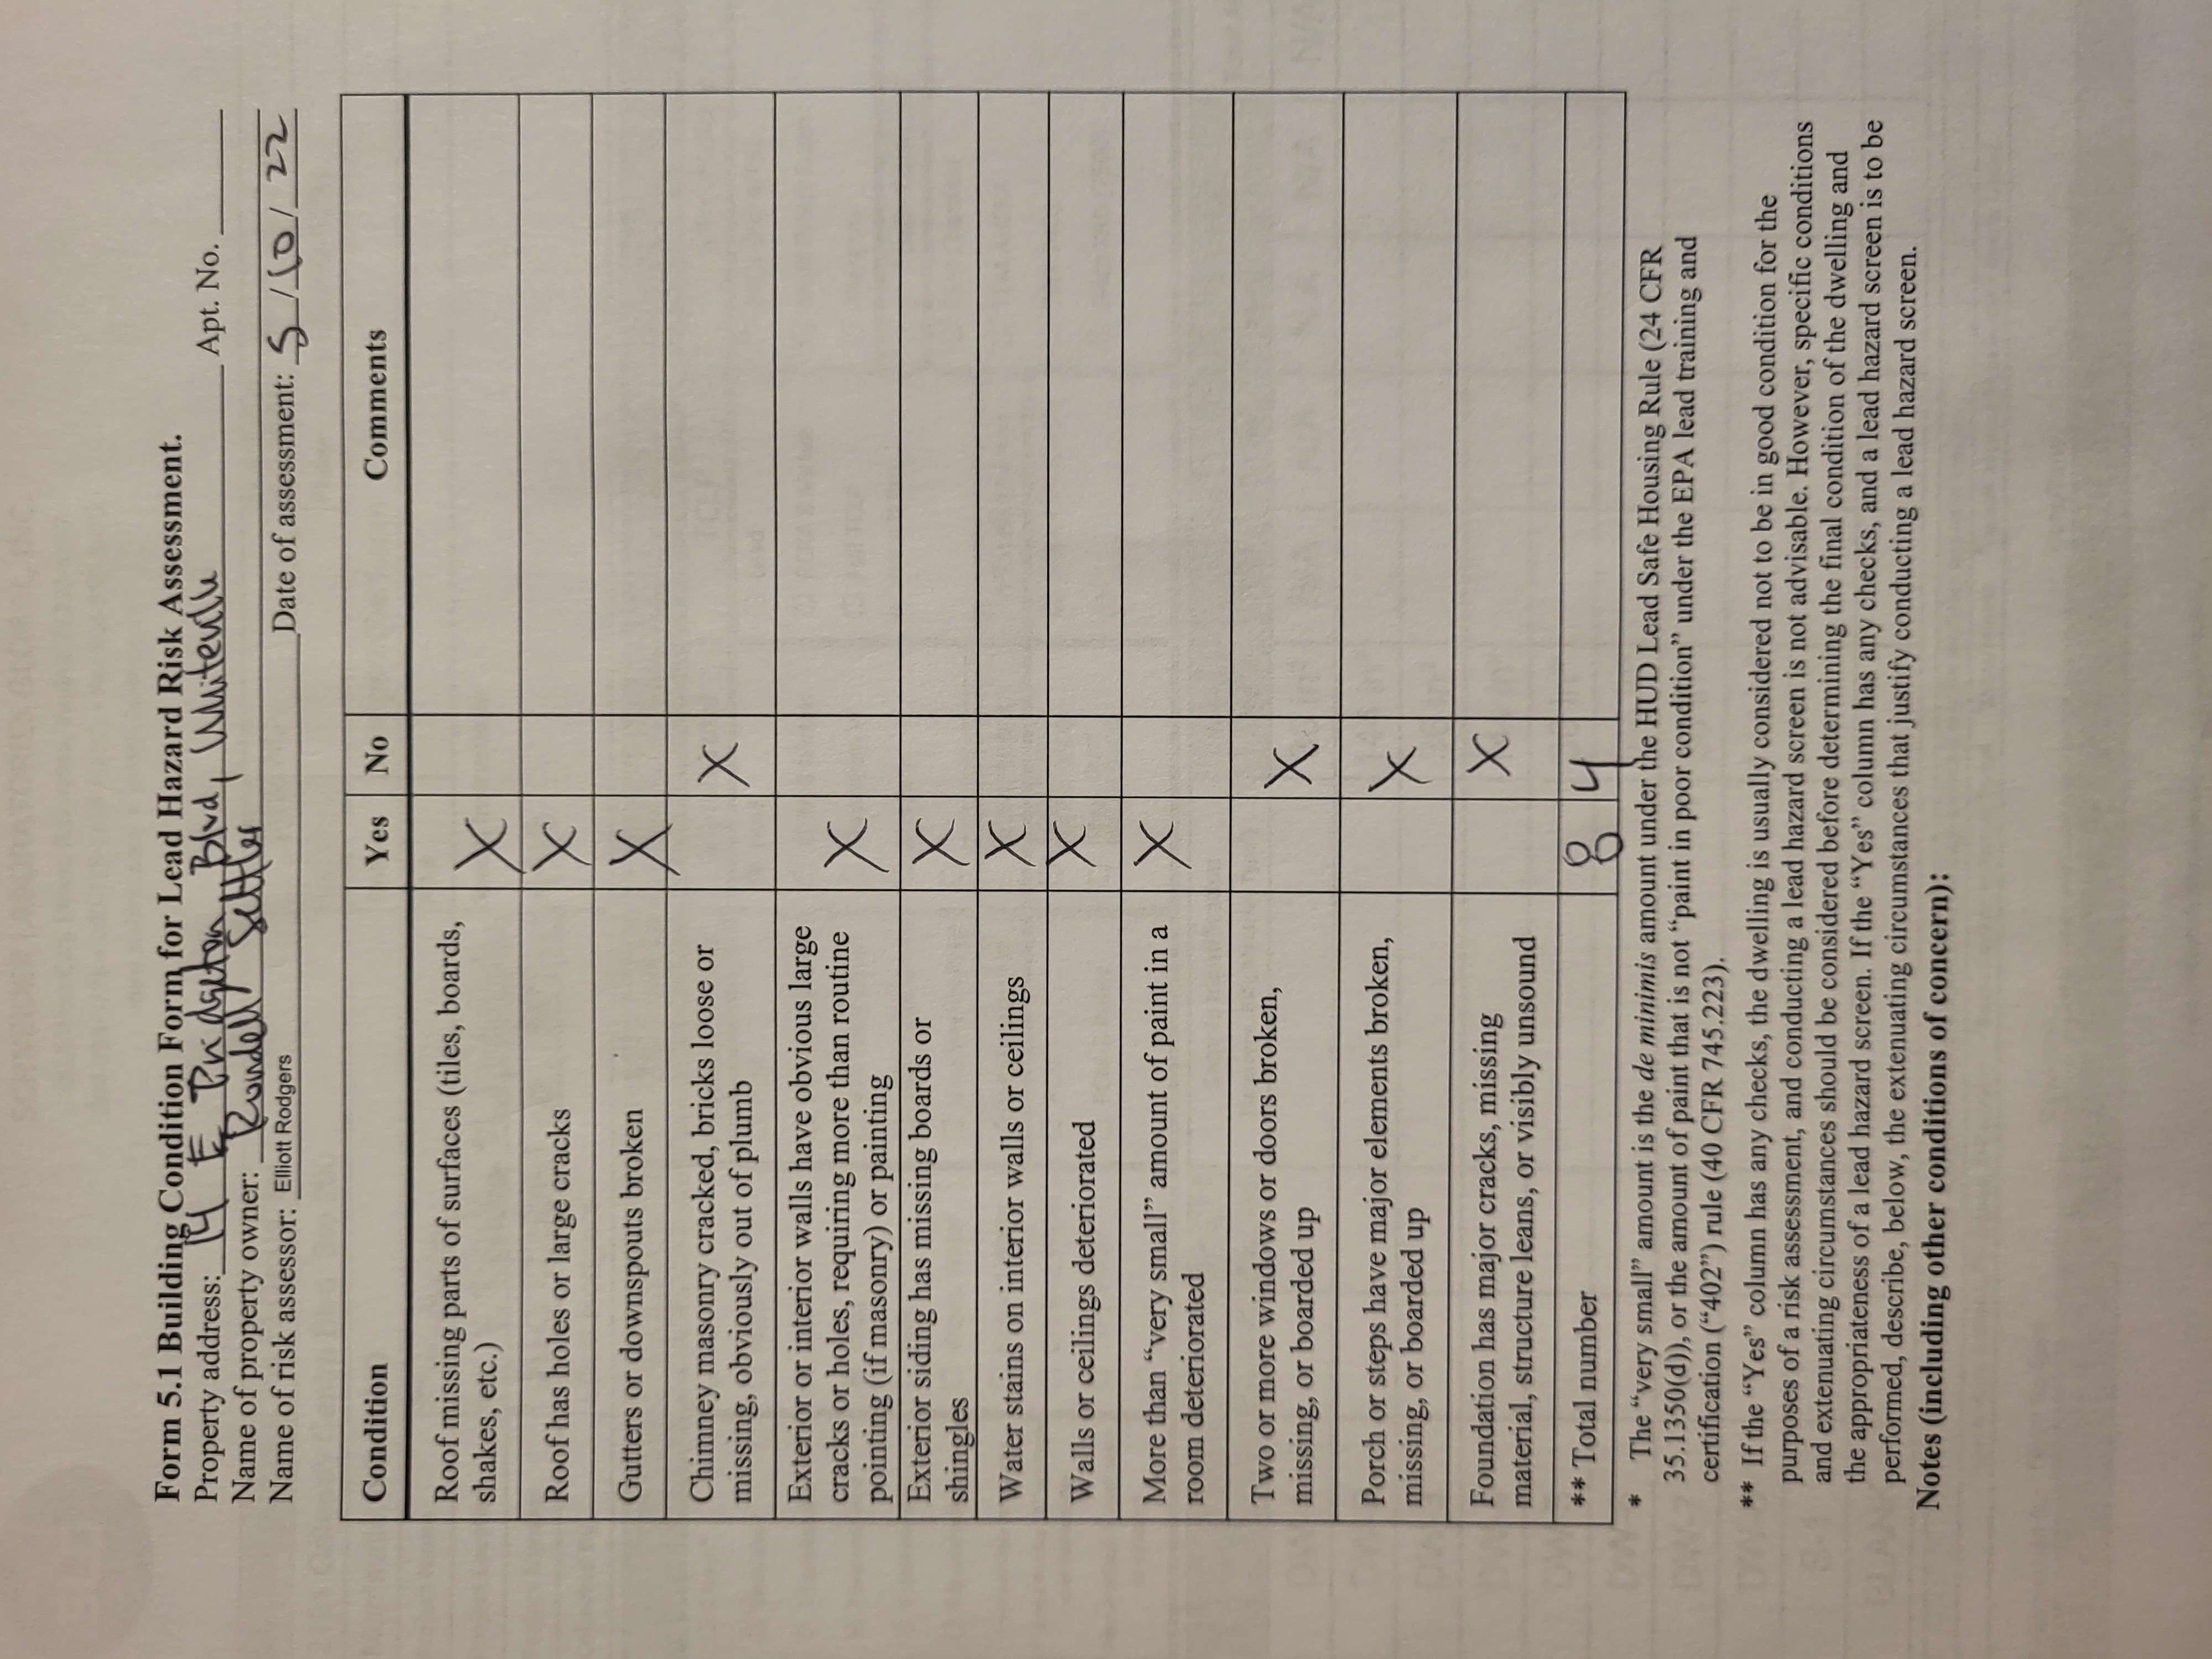 Form 5.1 Building Condition Form for Lead Hazard Risk Assessment.
Property address: 14 E Bridgeton Blvd, Apt. No.
Name of property owner: Rondell Settles
Name of risk assessor: Elliott Rodgers Date of assessment: 5/10/22
Condition Yes No Comments
Roof missing parts of surfaces (tiles, boards,
shakes, etc.) X
Roof has holes or large cracks X
Gutters or downspouts broken X
Chimney masonry cracked, bricks loose or
missing, obviously out of plumb X
Exterior or interior walls have obvious large
cracks or holes, requiring more than routine
pointing (if masonry) or painting X
Exterior siding has missing boards or
shingles X
Water stains on interior walls or ceilings X
Walls or ceilings deteriorated X
More than “very small” amount of paint in a
room deteriorated X
Two or more windows or doors broken,
missing, or boarded up X
Porch or steps have major elements broken,
missing, or boarded up X
Foundation has major cracks, missing
material, structure leans, or visibly unsound X
** Total number 8 4
* The “very small” amount is the de minimis amount under the HUD Lead Safe Housing Rule (24 CFR
35.1350(d)), or the amount of paint that is not “paint in poor condition” under the EPA lead training and
certification (“402”) rule (40 CFR 745.223).
** If the “Yes” column has any checks, the dwelling is usually considered not to be in good condition for the
purposes of a risk assessment, and conducting a lead hazard screen is not advisable. However, specific conditions
and extenuating circumstances should be considered before determining the final condition of the dwelling and
the appropriateness of a lead hazard screen. If the “Yes” column has any checks, and a lead hazard screen is to be
performed, describe, below, the extenuating circumstances that justify conducting a lead hazard screen.
Notes (including other conditions of concern):